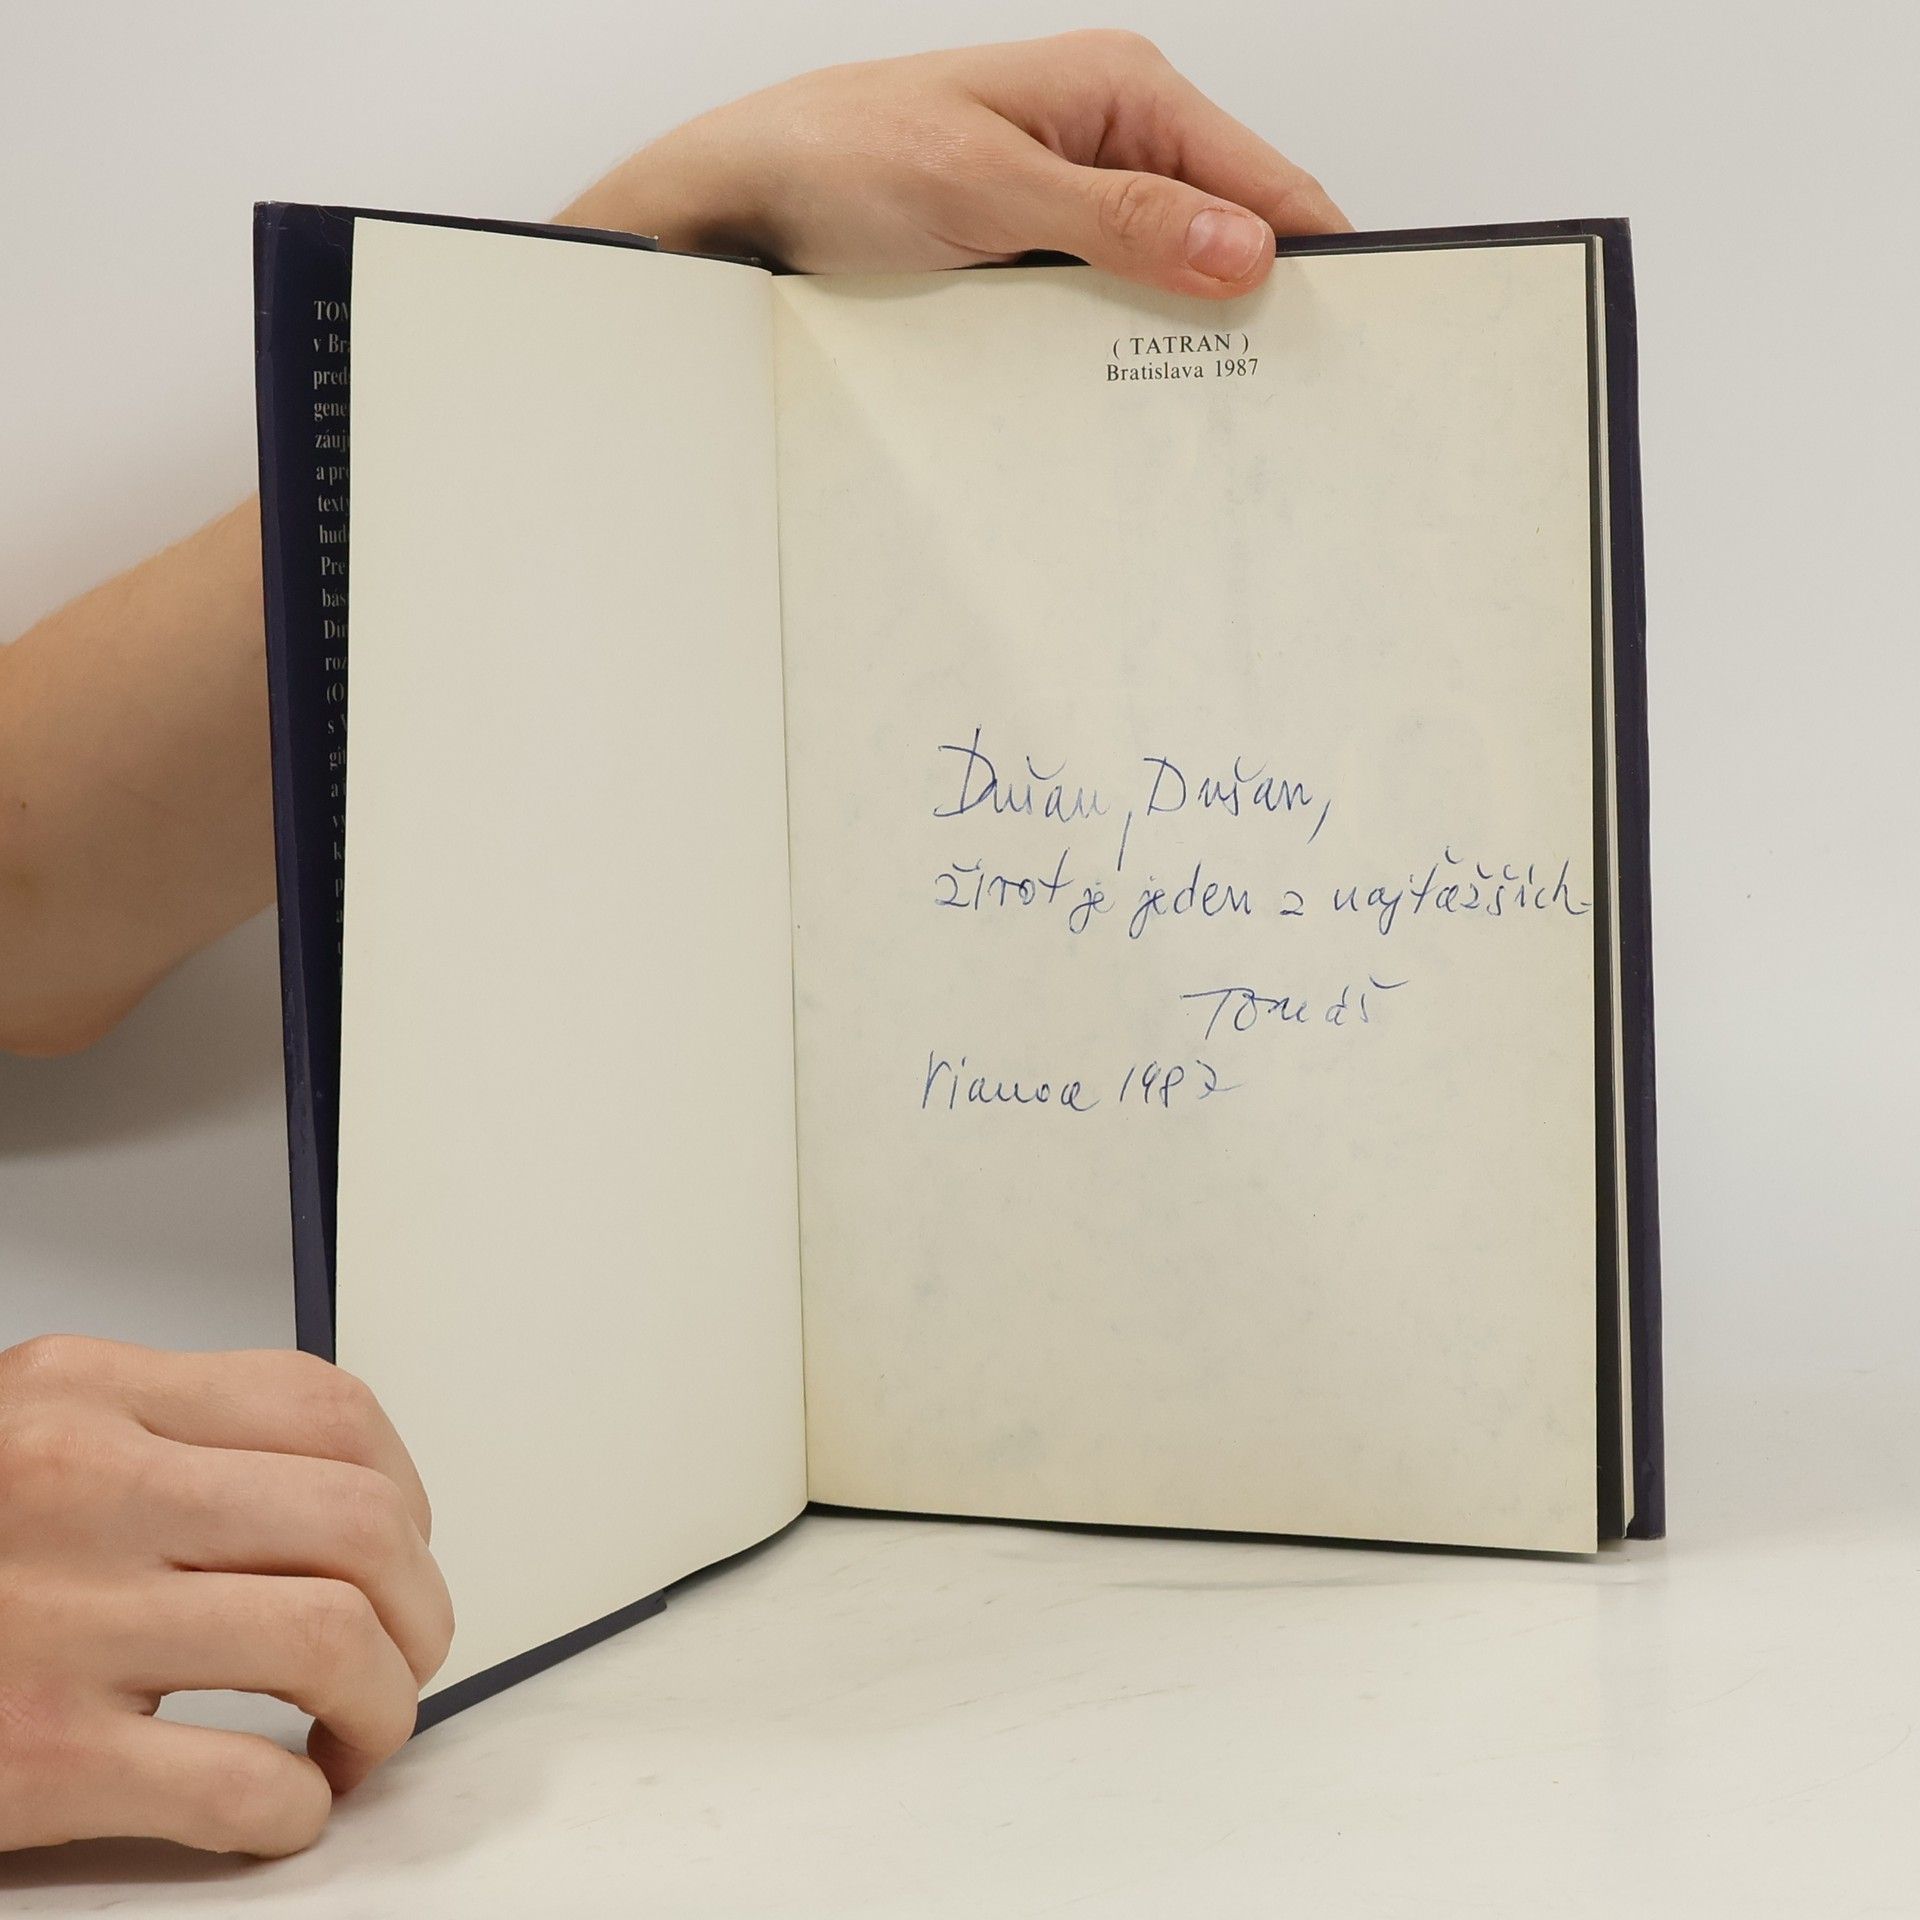 TOM
v Bra
preds
gene
záuj
a pre
texty
hud
Pre
bás
Din
roz
(O
s V
git
a
( TATRAN )
Bratislava 1987
Dušan, Dušan,
život je jeden z najťažších
Tomáš
Vianoce 1987